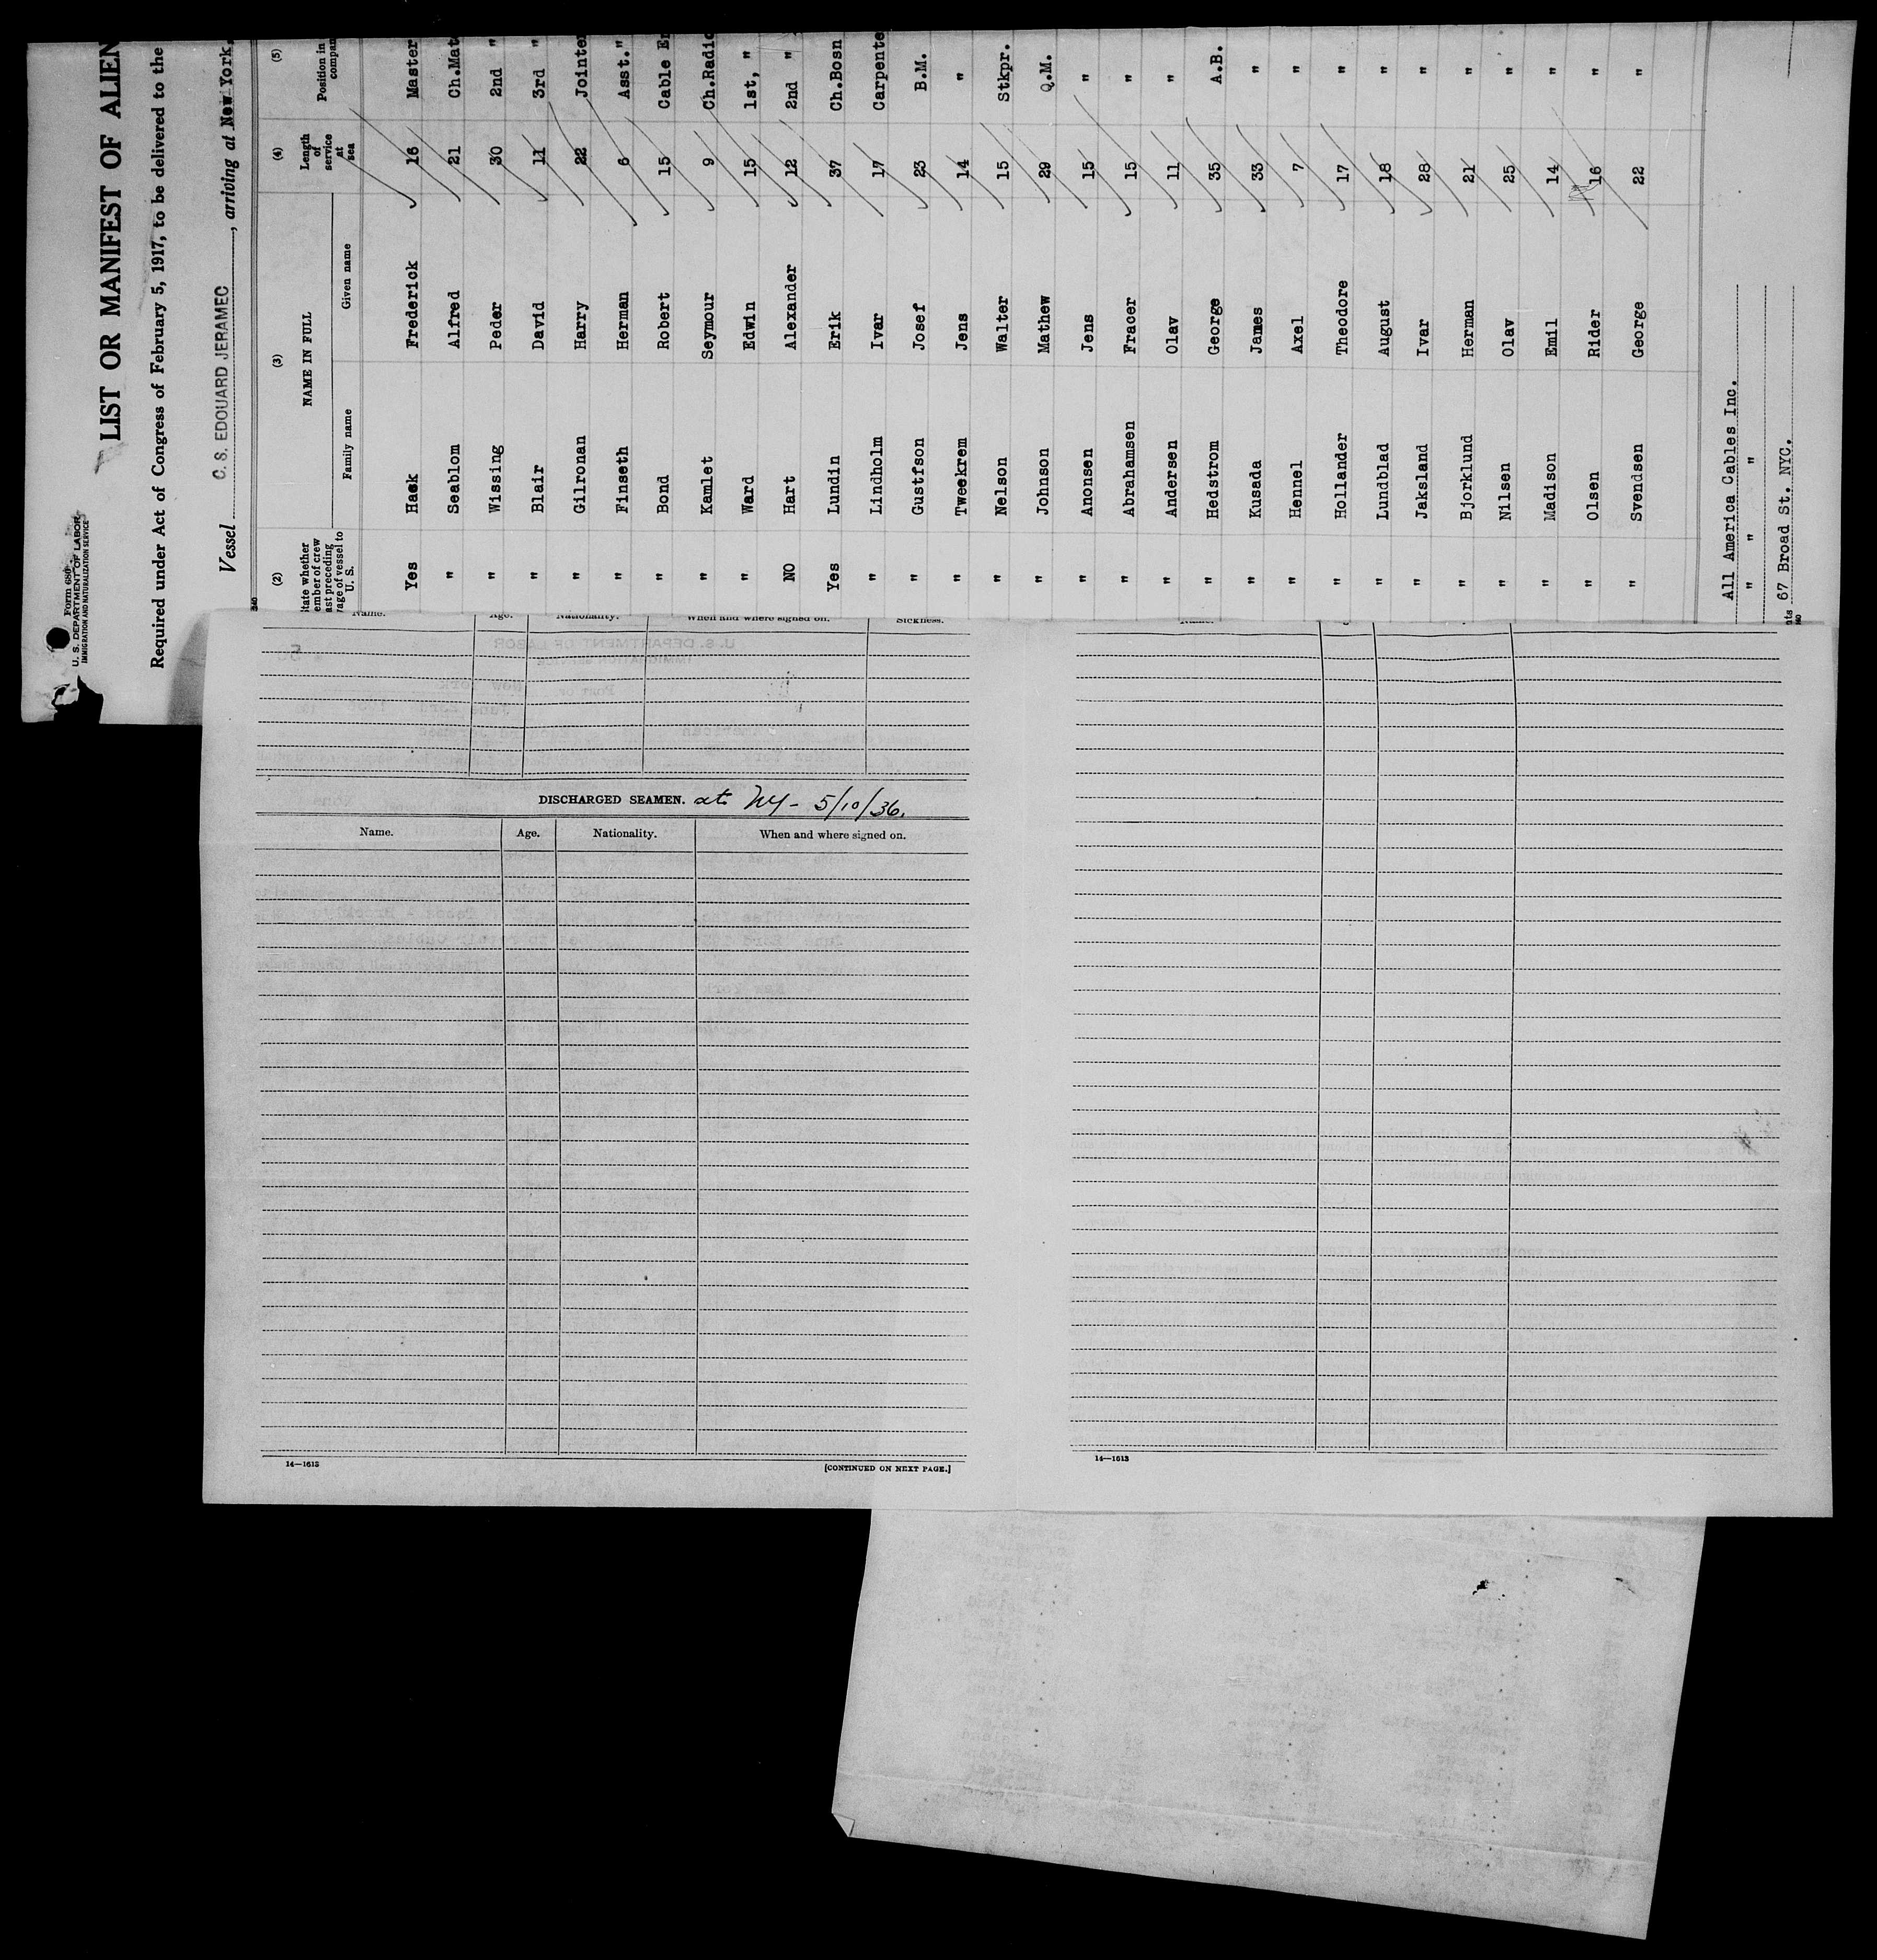 Form 680
U. S. DEPARTMENT OF LABOR
IMMIGRATION AND NATURALIZATION SERVICE
LIST OR MANIFEST OF ALIEN
Required under Act of Congress of February 5, 1917, to be delivered to the
Vessel C. S. EDOUARD JERAMEC, arriving at New York,
(2) (3) (4) (5)
NAME IN FULL
Family name Given name
Length of service at sea
Position in
Yes Hack Frederick 16 Master
" Seablom Alfred 21 Ch.Mat
" Wissing Peder 30 2nd "
" Blair David 11 3rd "
" Gilronan Harry 22 Jointe
" Finseth Herman 6 Asst."
" Bond Robert 15 Cable En
" Kamlet Seymour 9 Ch.Radio
" Ward Edwin 15 1st, "
NO Hart Alexander 12 2nd "
Yes Lundin Erik 37 Ch.Bosn
" Lindholm Ivar 17 Carpente
" Gustfson Josef 23 B.M.
" Tweekrem Jens 14 "
" Nelson Walter 15 Stkpr.
" Johnson Mathew 29 Q.M.
" Anonsen Jens 15 "
" Abrahamsen Fracer 15 "
" Andersen Olav 11 "
" Hedstrom George 35 A.B.
" Kusada James 33 "
" Hennel Axel 7 "
" Hollander Theodore 17 "
" Lundblad August 18 "
" Jaksland Ivar 28 "
" Bjorklund Herman 21 "
" Nilsen Olav 25 "
" Madison Emil 14 "
" Olsen Rider 16 "
" Svendsen George 22 "
All America Cables Inc.
" " "
67 Broad St. NYC.
Name. Age. Nationality. When and where signed on. Sickness.
DISCHARGED SEAMEN. at NY - 5/10/36.
Name. Age. Nationality. When and where signed on.
14—1613 [CONTINUED ON NEXT PAGE.]
14—1613